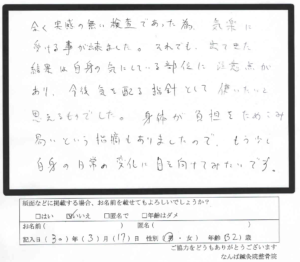 全く実感の無い検査であった為、気楽に
受ける事が出来ました。それでも、出てきた
結果は自身の気にしている部位に注意点が
あり、今後気を配る指針として使いたいと
思えるものでした。身体が負担をためこみ
易いという指摘もありましたので、もう少し
自身の日常の変化に目を向けてみたいです。
紙面などに掲載する場合、お名前を載せてもよろしいでしょうか？
□はい ☑いいえ □匿名で □年齢はダメ
お名前( ) 匿名( )
記入日(30)年(3)月(17)日 性別(男・女) 年齢(52)歳
ご協力をどうもありがとうございます
なんば鍼灸院整骨院